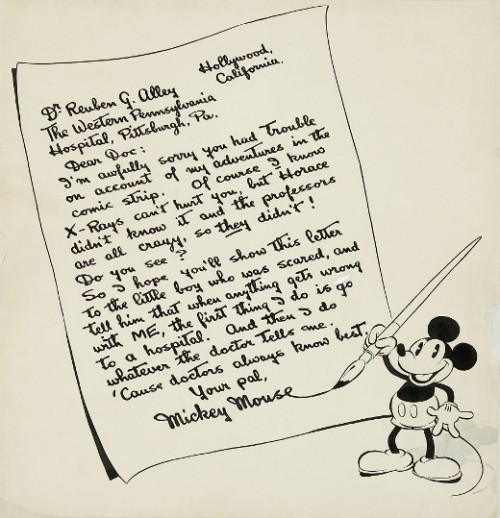 Hollywood,
California.
Dr Reuben G. Alley
The Western Pennsylvania
Hospital, Pittsburgh, Pa.
Dear Doc:
I'm awfully sorry you had trouble
on account of my adventures in the
comic strip. Of course I know
X-Rays can't hurt you, but Horace
didn't know it and the professors
are all crazy, so they didn't!
Do you see?
So I hope you'll show this letter
to the little boy who was scared, and
tell him that when anything gets wrong
with ME, the first thing I do is go
to a hospital. And then I do
whatever the doctor tells me.
'Cause doctors always know best.
Your pal,
Mickey Mouse